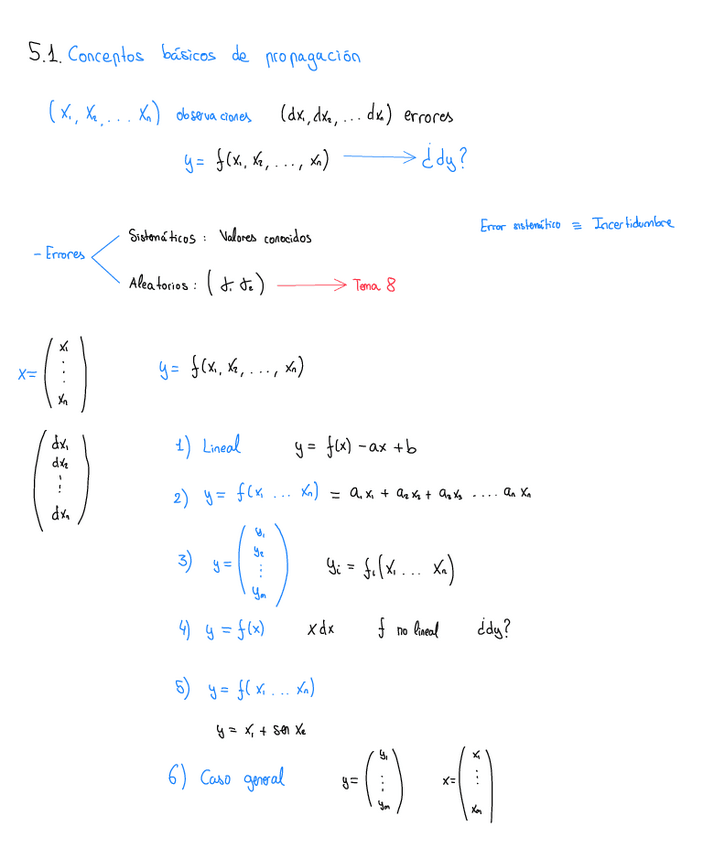 5.1. Conceptos básicos de propagación
(x₁, x₂, ... xₙ) observaciones (dx₁, dx₂, ... dxₙ) errores
y = f(x₁, x₂, ..., xₙ) → ¿dy?
Error sistemático ≡ Incertidumbre
- Errores
Sistemáticos : Valores conocidos
Aleatorios : → Tema 8
x = (x₁ ⋮ xₙ) y = f(x₁, x₂, ..., xₙ)
(dx₁ dx₂ ⋮ dxₙ)
1) Lineal y = f(x) - ax + b
2) y = f(x₁ ... xₙ) = a₁x₁ + a₂x₂ + a₃x₃ .... aₙxₙ
3) y = (y₁ y₂ ⋮ yₘ) yᵢ = fᵢ(x₁ ... xₙ)
4) y = f(x) x dx f no lineal ¿dy?
5) y = f(x₁ ... xₙ)
y = x₁ + sen x₂
6) Caso general y = (y₁ ⋮ yₘ) x = (x₁ ⋮ xₘ)